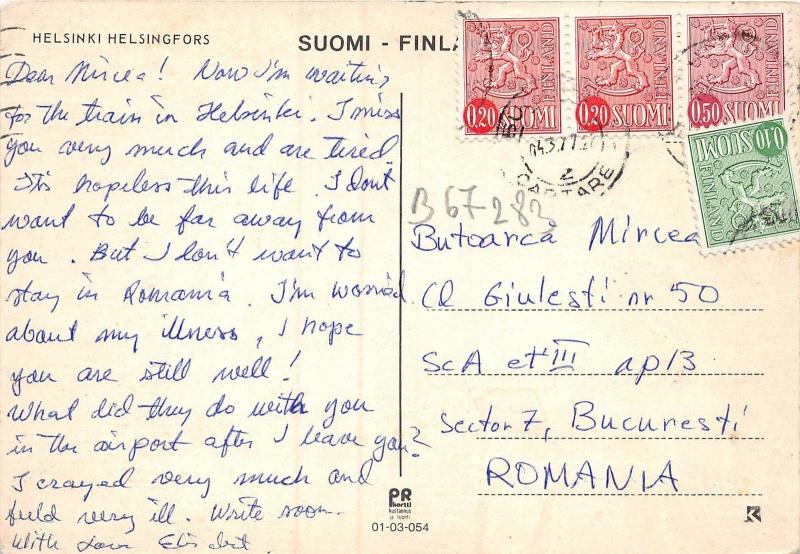 HELSINKI HELSINGFORS
SUOMI - FINLA
Dear Mircea! Now I'm waiting
for the train in Helsinki. I miss
you very much and are tired.
It's hopeless this life. I don't
want to be far away from
you. But I don't want to
stay in Romania. I'm worried
about my illness, I hope
you are still well!
What did they do with you
in the airport after I leave you?
I crayed very much and
feeld very ill. Write soon.
With Love
0.20 SUOMI FINLAND
0.20 SUOMI FINLAND
0.50 SUOMI FINLAND
0.10 SUOMI FINLAND
B67283
Butoarca Mircea
Cl Giulesti nr 50
Sc A et III ap 13
Sector 7, Bucuresti
ROMANIA
PR
kortti
01-03-054